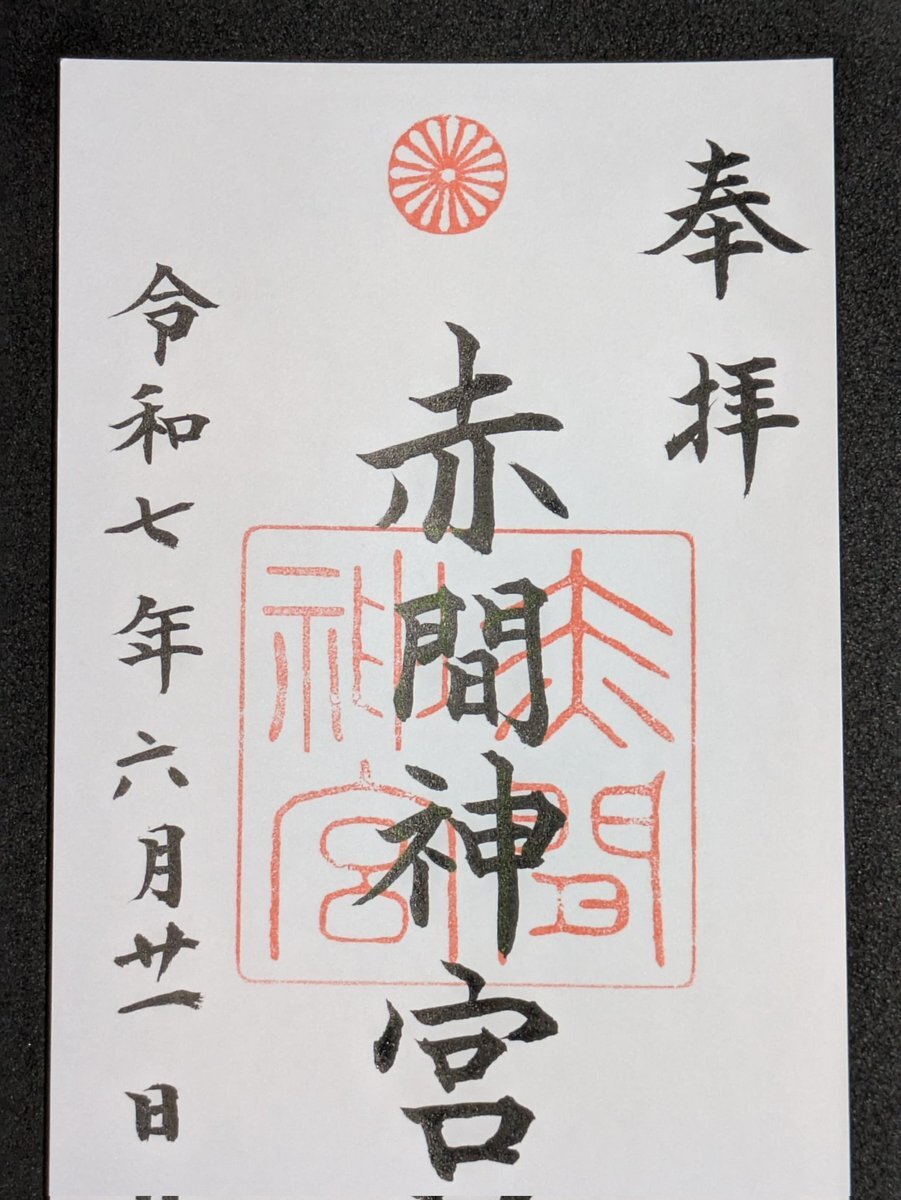 奉拝
赤間神宮
赤間神宮
令和七年六月廿一日